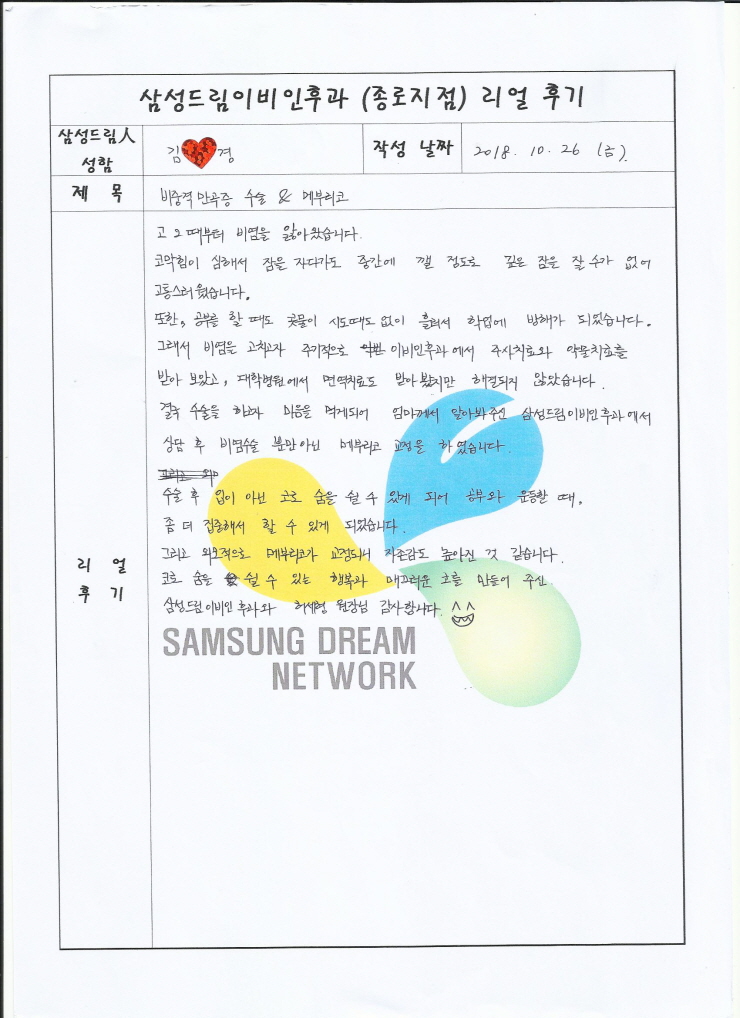 삼성드림이비인후과 (종로지점) 리얼 후기
삼성드림人 성함
김 경
작성 날짜
2018. 10. 26 (금).
제 목
비중격만곡증 수술 & 메부리코
리 얼 후 기
고2 때부터 비염을 앓아왔습니다.
코막힘이 심해서 잠을 자다가도 중간에 깰 정도로 깊은 잠을 잘 수가 없어
고통스러웠습니다.
또한, 공부를 할 때도 콧물이 시도때도 없이 흘려서 학업에 방해가 되었습니다.
그래서 비염을 고치고자 주기적으로 이비인후과에서 주사치료와 약물치료를
받아 보았고, 대학병원에서 면역치료도 받아 봤지만 해결되지 않았습니다.
결국 수술을 하고자 마음을 먹게되어 엄마께서 알아봐주신 삼성드림이비인후과에서
상담 후 비염수술 뿐만아닌 메부리코 교정을 하였습니다.
수술 후 입이 아닌 코로 숨을 쉴 수 있게 되어 공부와 운동할 때,
좀 더 집중해서 할 수 있게 되었습니다.
그리고 외모적으로 메부리코가 교정되서 자존감도 높아진 것 같습니다.
코로 숨을 쉴 수 있는 행복과 매끄러운 코를 만들어 주신
삼성드림이비인후과와 허세형 원장님 감사합니다. ^^
SAMSUNG DREAM
NETWORK